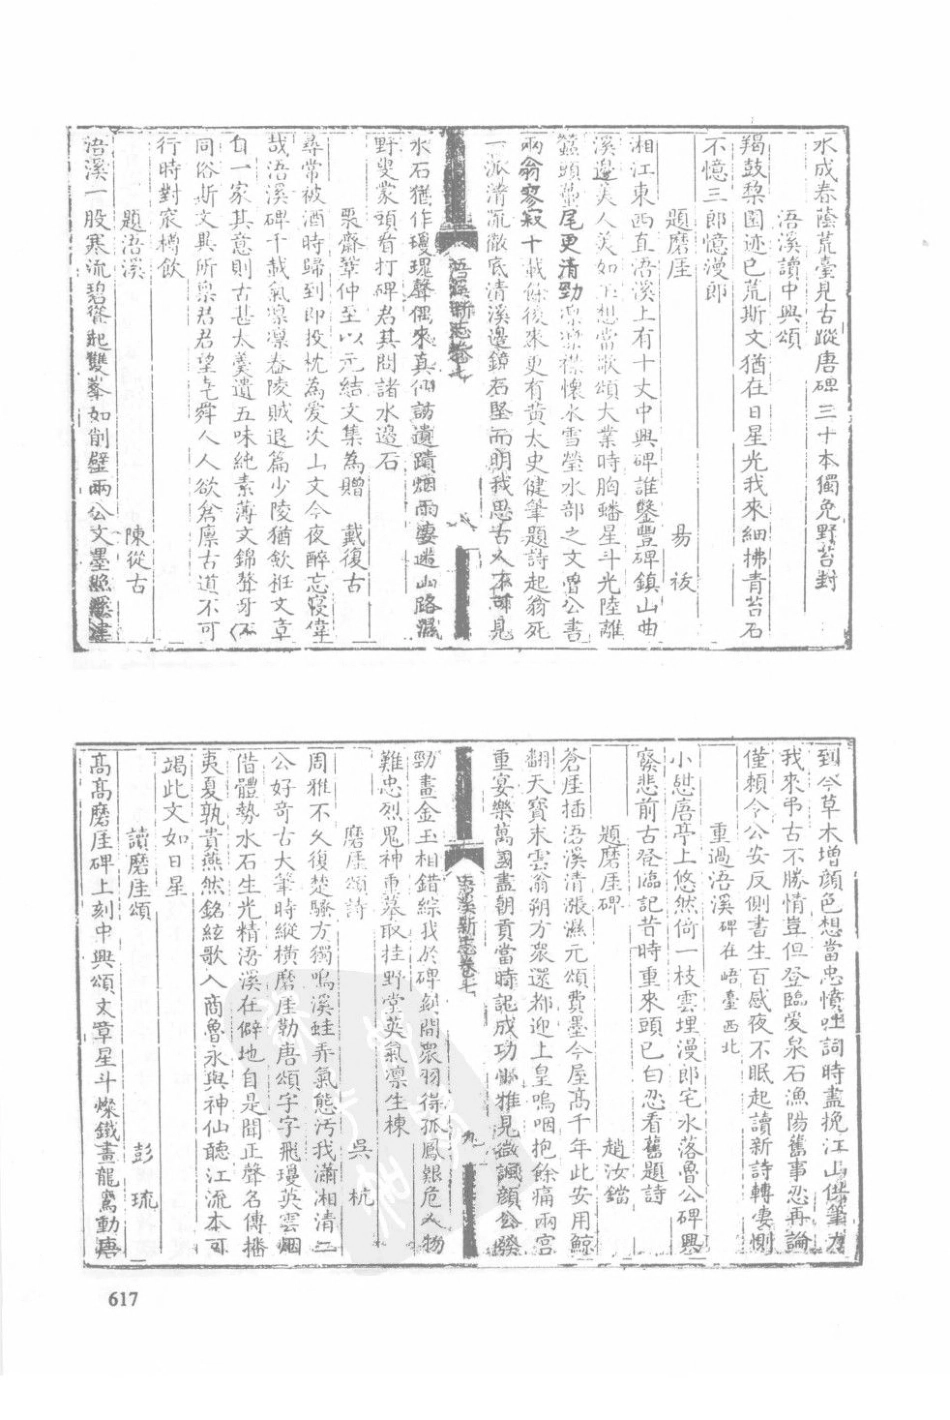 水成春蔭荒臺見古蹤唐碑三十本獨免野苔封
浯溪讀中興頌
羯鼓棃園迹已荒斯文猶在日星光我來細拂青苔石
不憶三郎憶漫郎
題磨厓 易祓
湘江東西直浯溪上有十丈中興碑誰鑒豐碑鎮山曲
溪邊美人美如玉想當歌頌大業時胸蟠星斗光陸離
蠶頭蠆尾更清勁凛凛襟懷氷雪瑩水部之文魯公書
兩翁寥寂十載餘後來更有黄太史健筆題詩起翁死
一派清流徹底清溪邊鏡石堅而明我思古人不可見
水石猶作瓊琨聲偶來真仙訪遺蹟烟雨凄迷山路濕
野叟蒙頭看打碑君其問諸水邊石
聚齋鞏仲至以元結文集為贈 戴復古
尋常被酒時歸到即投枕為愛次山文今夜醉忘寢偉
哉浯溪碑千載氣凛凛舂陵賊退篇少陵猶歛袵文章
自一家其意則古甚太羮遺五味純素薄文錦聱牙不
同俗斯文異所稟君君望堯舜人人欲倉廪古道不可
行時對窊樽飲
題浯溪 陳從古
浯溪一股寒流碧從起雙峯如削壁兩公文墨照溪津
浯溪新志卷七
到今草木增顔色想當忠憤吐詞時盡挽江山供筆力
我來弔古不勝情豈但登臨愛泉石漁陽舊事忍再論
僅賴令公安反側書生百感夜不眠起讀新詩轉凄惻
重過浯溪 碑在峿臺西北
小憇唐亭上悠然倚一枝雲埋漫郎宅水落魯公碑興
廢悲前古登臨記昔時重來頭已白忍看舊題詩
題磨厓碑 趙汝鐺
蒼厓插浯溪清漲濕元頌費墨今屋高千年此安用鯨
翻天寶末雲翁朔方衆還都迎上皇嗚咽抱餘痛兩宫
重宴樂萬國盡朝貢當時記成功 雅見微諷顔公發
勁畫金玉相錯綜我於碑 間衆羽得孤鳳艱危人物
難忠烈鬼神重墓取挂野堂英氣凛生棟
磨厓頌詩 吳杭
周雅不久復楚騷方獨鳴溪蛙弄氣態汚我瀟湘清二
公好奇古大筆時縱横磨厓勒唐頌字字飛瓊英雲烟
借體勢水石生光精浯溪在僻地自是聞正聲名傳播
夷夏孰貴燕然銘絃歌入商魯永與神仙聽江流本可
竭此文如日星
讀磨厓頌 彭琉
高高磨厓碑上刻中興頌文章星斗燦鐵畫龍鸞動唐
浯溪新志卷七 九
617